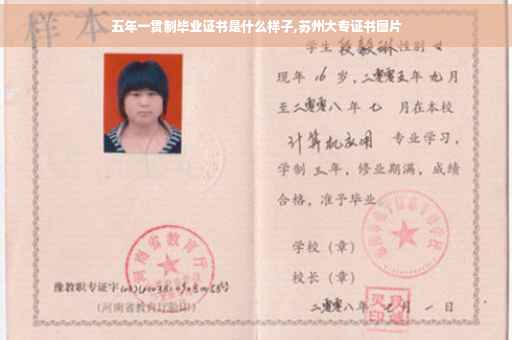 五年一贯制毕业证书是什么样子,苏州大专证书图片
样本
学生段毅琳性别女
现年16岁,二零零五年九月
至二零零八年七月在本校
计算机应用 专业学习,
学制三年,修业期满,成绩
合格,准予毕业。
学校(章)
校长(章)
二零零八年七月一日
河南省教育厅
豫教职专证字
(河南省教育厅验印)